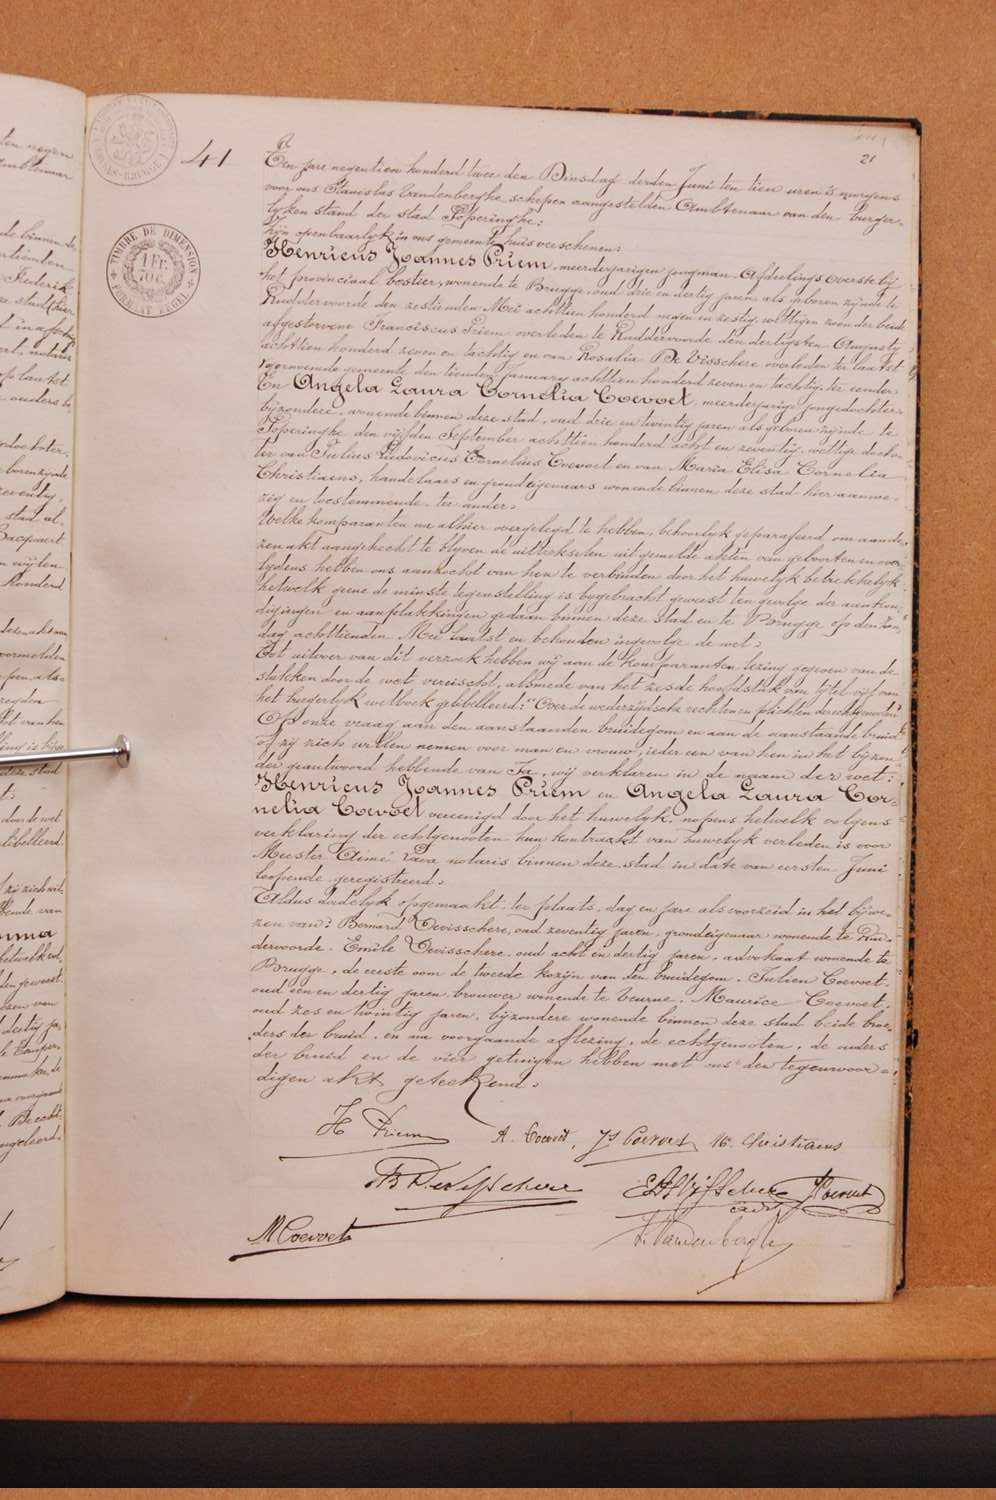 41
21
TIMBRE DE DIMENSION
1 FR. 70 C.
FORMAAT ZEGEL
Een jare negentien honderd twee den Dinsdag derden Juni ten tien uren 's morgens
voor ons Stanislas Vandenberghe schepen aangestelden Ambtenaar van den burger-
lyken stand der stad Poperinghe:
Zijn openbaarlyk in ons gemeente huis verschenen:
Henricus Joannes Priem, meerderjarigen jongman Afdeelings overste bij
het provinciaal bestier, wonende te Brugge, oud drie en dertig jaren als geboren zijnde te
Ruddervoorde den zestienden Mei achttien honderd negen en zestig, wettigen zoon der beide
afgestorvene Franciscus Priem overleden te Ruddervoorde den dertigsten Augusty
achttien honderd zeven en tachtig en van Rosalia De Visschere overleden te laatst
voornoemde gemeente den tienden January achttien honderd zeven en tachtig. ter eender
En Angela Laura Cornelia Coevoet, meerderjarige jongedochter,
bijzondere, wonende binnen deze stad, oud drie en twintig jaren als geboren zijnde te
Poperinghe den vijfden September achttien honderd acht en zeventig, wettige doch-
ter van Julius Ludovicus Cornelius Coevoet en van Maria Elisa Cornelia
Christiaens, handelaars en grondeigenaars wonende binnen deze stad hier aanwe-
zig en toestemmende. ter ander.
Welke komparanten na alhier overgelegd te hebben, behoorlyk geparafeerd om aan de-
zen akt aangehecht te blyven de uittrekselen uit gemelde akten van geboorten en over
lydens hebben ons aanzocht van hen te verbinden door het huwelyk betrekkelyk
hetwelk geene de minste tegenstelling is bygebracht geweest ten gevolge der aankon-
digingen en aanplakkingen gedaan binnen deze stad en te Brugge op den Zon-
dag achttienden Mei laatst en behouden ingevolge de wet.
Tot uitvoer van dit verzoek hebben wij aan de komparanten lezing gegeven van de
stukken door de wet vereischt, alsmede van het zesde hoofdstuk van tytel vijf van
het burgerlyk wetboek gelibelleerd: "Over de wederzijdsche rechten en plichten der echtgenooten"
Op onze vraag aan den aanstaanden bruidegom en aan de aanstaande bruid
of zij zich willen nemen voor man en vrouw, ieder een van hen in het bijzon-
der geantwoord hebbende van Ja, wij verklaren in de naam der wet:
Henricus Joannes Priem en Angela Laura Cor-
nelia Coevoet vereenigd door het huwelyk, nopens hetwelk volgens
verklaring der echtgenooten hun kontrakt van huwelyk verleden is voor
Meester Aimé Lava notaris binnen deze stad in date van eersten Juni
loopende geregistreerd.
Aldus dadelyk opgemaakt ter plaats, dag en jare als voorzeid in het bijwe-
zen van: Bernard Devisschere, oud zeventig jaren, grondeigenaar wonende te Rud-
dervoorde. Emile Devisschere, oud acht en dertig jaren, advokaat wonende te
Brugge, de eerste oom de tweede kozijn van den bruidegom. Julien Coevoet.
oud een en dertig jaren, brouwer wonende te Veurne. Maurice Coevoet.
oud zes en twintig jaren, bijzondere wonende binnen deze stad beide broe-
ders der bruid, en na voorgaande aflezing, de echtgenooten, de ouders
der bruid en de vier getuigen hebben met ons den tegenwoor-
digen akt geteekend.
H Priem A. Coevoet, Js Coevoet M. Christiaens
B Devisschere E. De Visschere J Coevoet
M Coevoet S. Vandenberghe